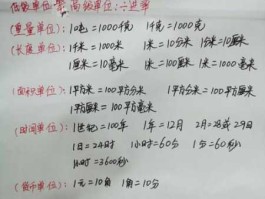 低级单位 高级单位:÷进率
(重量单位):1吨=1000千克 1千克=1000克
(长度单位):1千米=1000米 1米=10分米 1分米=10厘米
1厘米=10毫米 1米=100厘米 1厘米=10毫米
(面积单位):1平方米=100平方分米 1平方分米=100平方厘米
1平方厘米=100平方毫米
(时间单位):1世纪=100年 1年=12月 2月=28或29日
1日=24时 1小时=60分 1分=60秒
1小时=3600秒
(货币单位):1元=10角 1角=10分